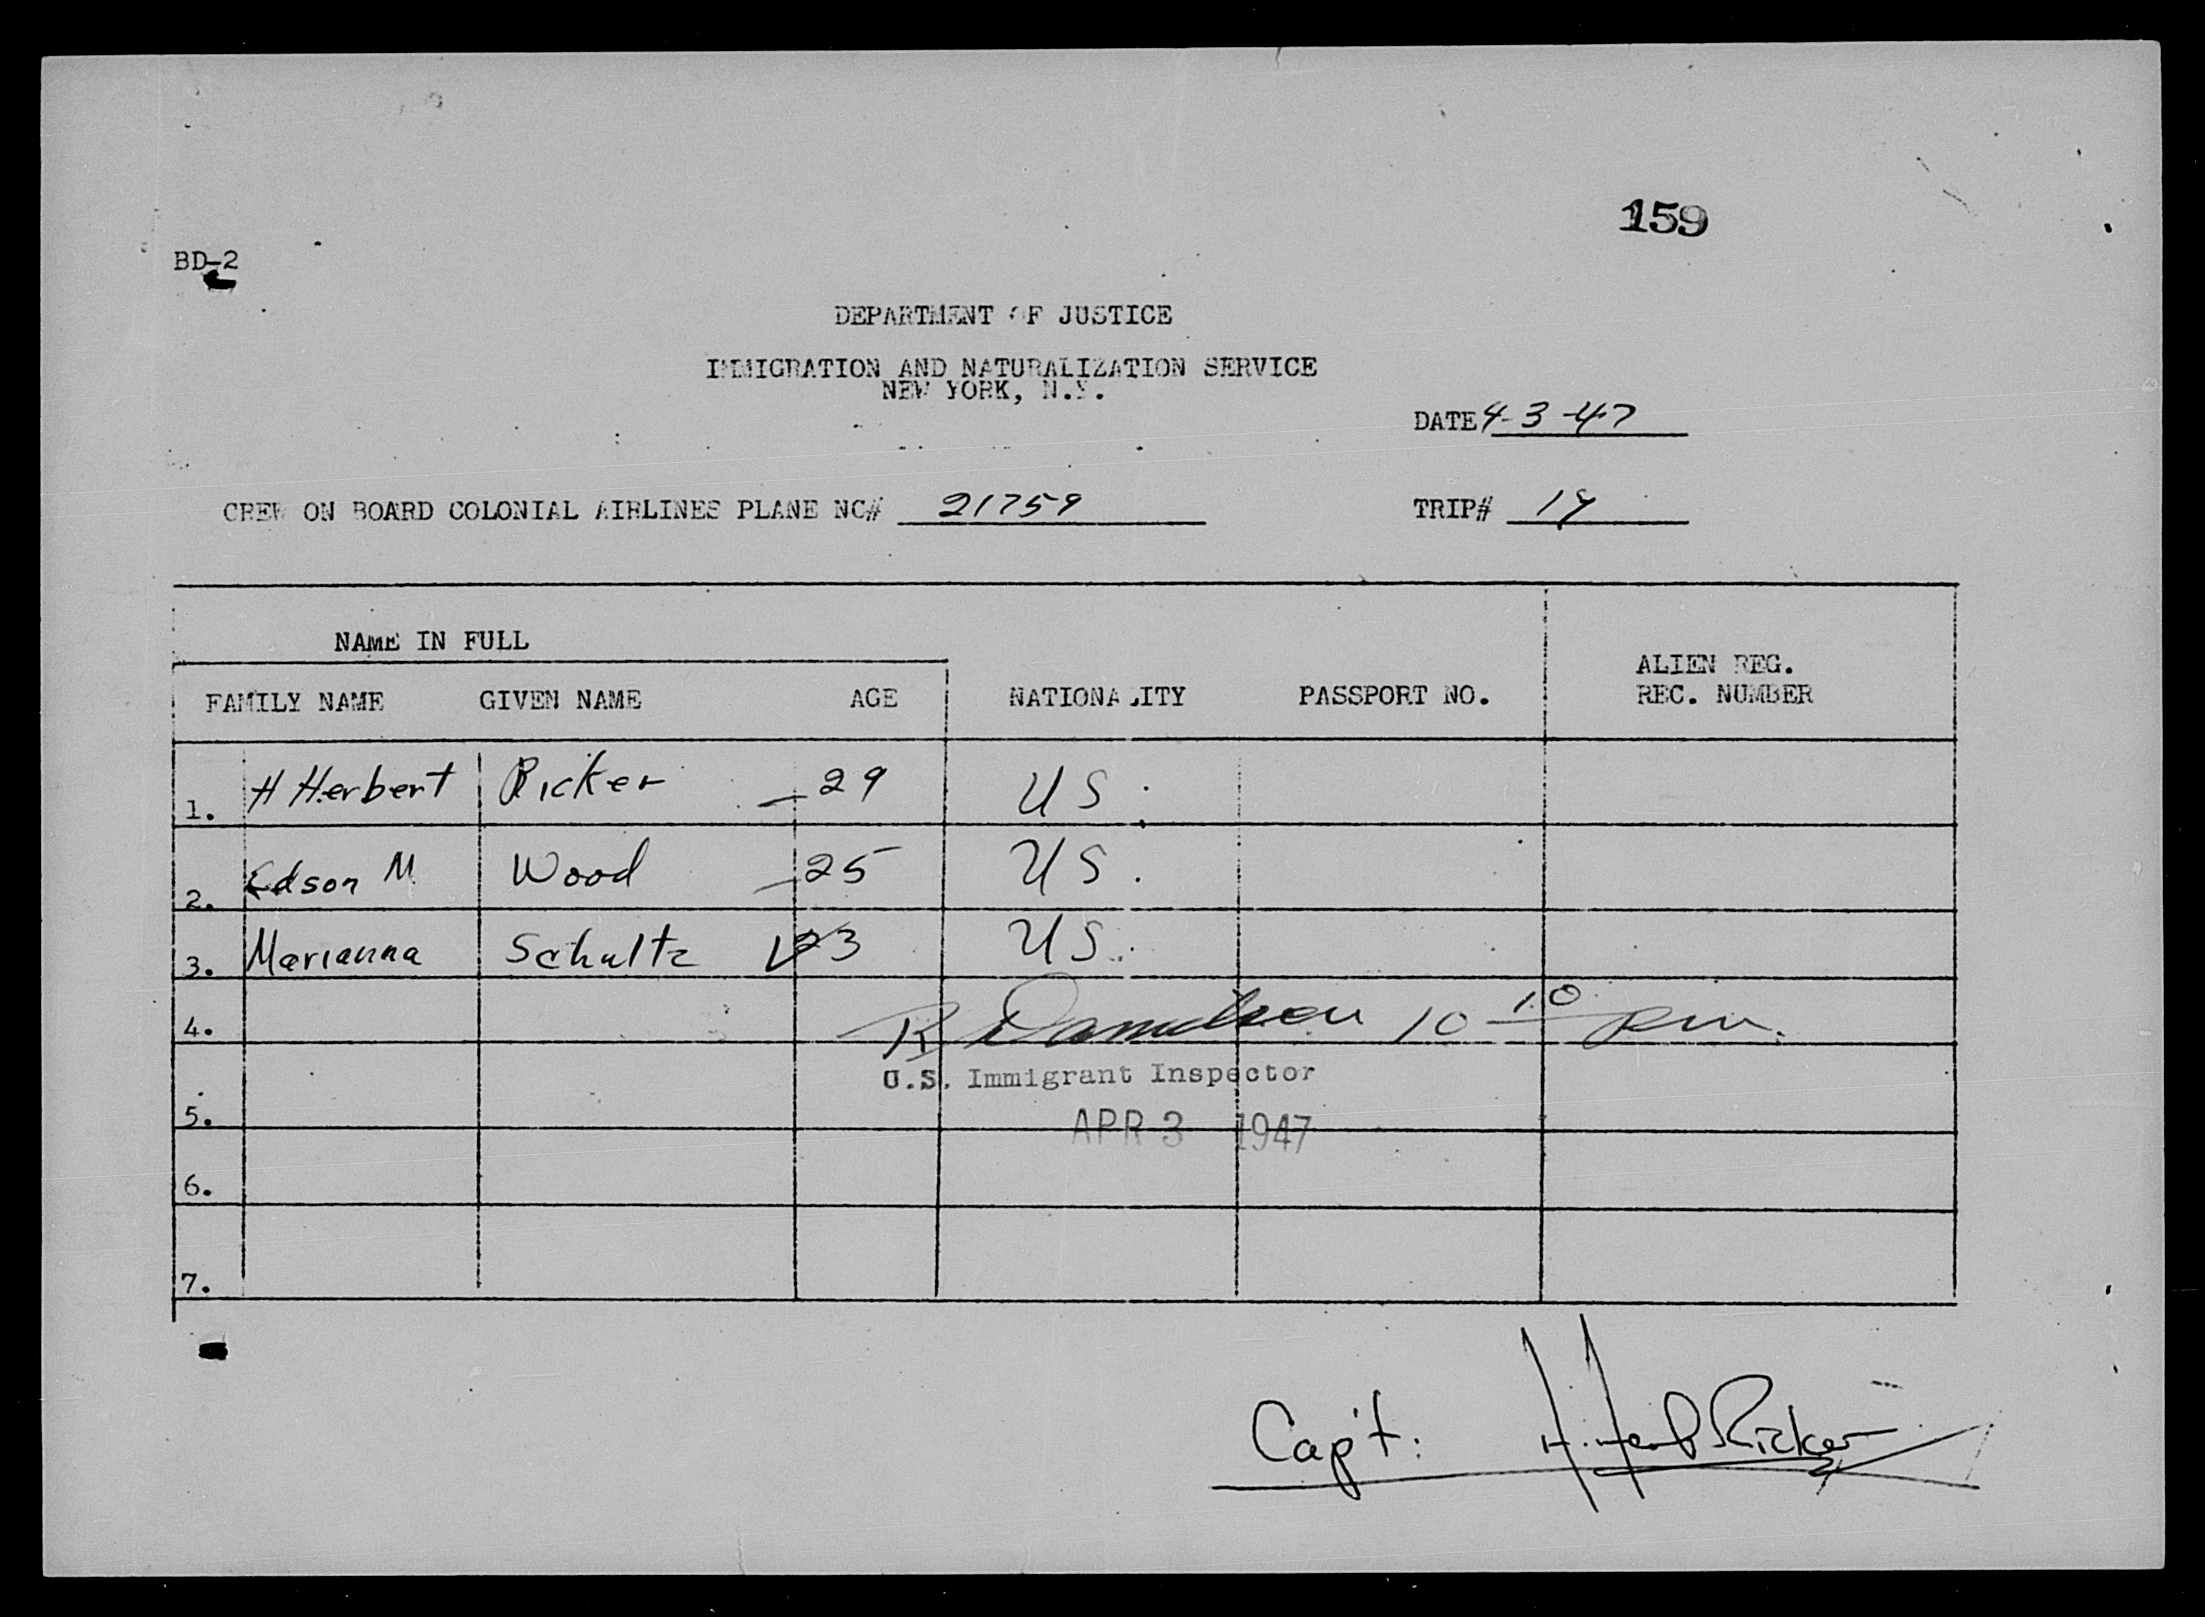 159
BD-2
DEPARTMENT OF JUSTICE
IMMIGRATION AND NATURALIZATION SERVICE
NEW YORK, N.Y.
DATE 4-3-47
CREW ON BOARD COLONIAL AIRLINES PLANE NC# 21759 TRIP# 19
NAME IN FULL
FAMILY NAME GIVEN NAME AGE NATIONALITY PASSPORT NO. ALIEN REG. REC. NUMBER
1. H Herbert Ricker 29 US.
2. Edson M. Wood 25 US.
3. Marianna Schultz 23 US.
4. R 10 10 pm.
U.S. Immigrant Inspector
5. APR 3 1947
6.
7.
Cap't. H. Herb Ricker